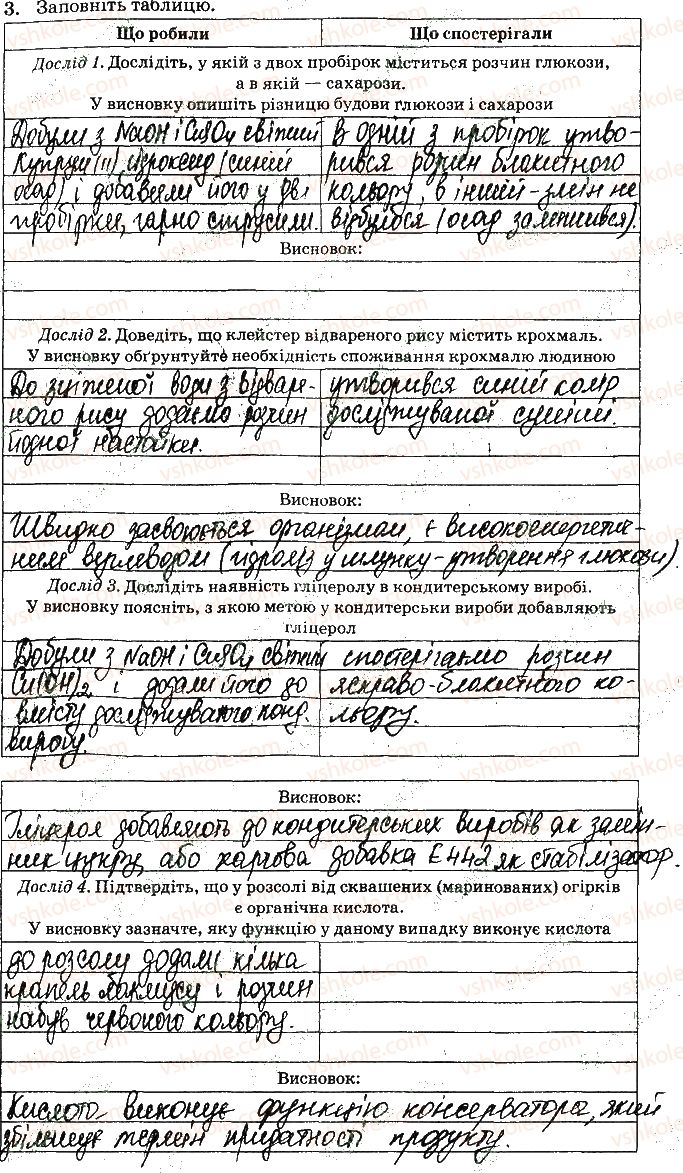 3. Заповніть таблицю.
Що робили Що спостерігали
Дослід 1. Дослідіть, у якій з двох пробірок міститься розчин глюкози,
а в якій — сахарози.
У висновку опишіть різницю будови глюкози і сахарози
Добули з NaOH і CuSO4 свіжий
купрум(II) гідроксид (синій
осад) і добавили його у дві
пробірки, гарно струсили.
В одній з пробірок утво-
рився розчин блакитного
кольору, в іншій - змін не
відбулося (осад залишився).
Висновок:
Дослід 2. Доведіть, що клейстер відвареного рису містить крохмаль.
У висновку обґрунтуйте необхідність споживання крохмалю людиною
До зціженої води з відваре-
ного рису додаємо розчин
йодної настойки.
утворився синій колір
досліджуваної суміші.
Висновок:
Швидко засвоюється організмом, є високоенергетич-
ним вуглеводом (гідроліз у шлунку - утворення глюкози).
Дослід 3. Дослідіть наявність гліцеролу в кондитерському виробі.
У висновку поясніть, з якою метою у кондитерськи вироби добавляють
гліцерол
Добули з NaOH і CuSO4 свіжий
Cu(OH)2 і додали його до
вмісту досліджуваного конд.
виробу.
спостерігаємо розчин
яскраво-блакитного ко-
льору.
Висновок:
Гліцерол добавляють до кондитерських виробів як замін-
ник цукру, або харчова добавка Е442 як стабілізатор.
Дослід 4. Підтвердіть, що у розсолі від сквашених (маринованих) огірків
є органічна кислота.
У висновку зазначте, яку функцію у даному випадку виконує кислота
до розсолу додали кілька
крапель лакмусу і розчин
набув червоного кольору.
Висновок:
Кислота виконує функцію консерватора, який
збільшує термін придатності продукту.